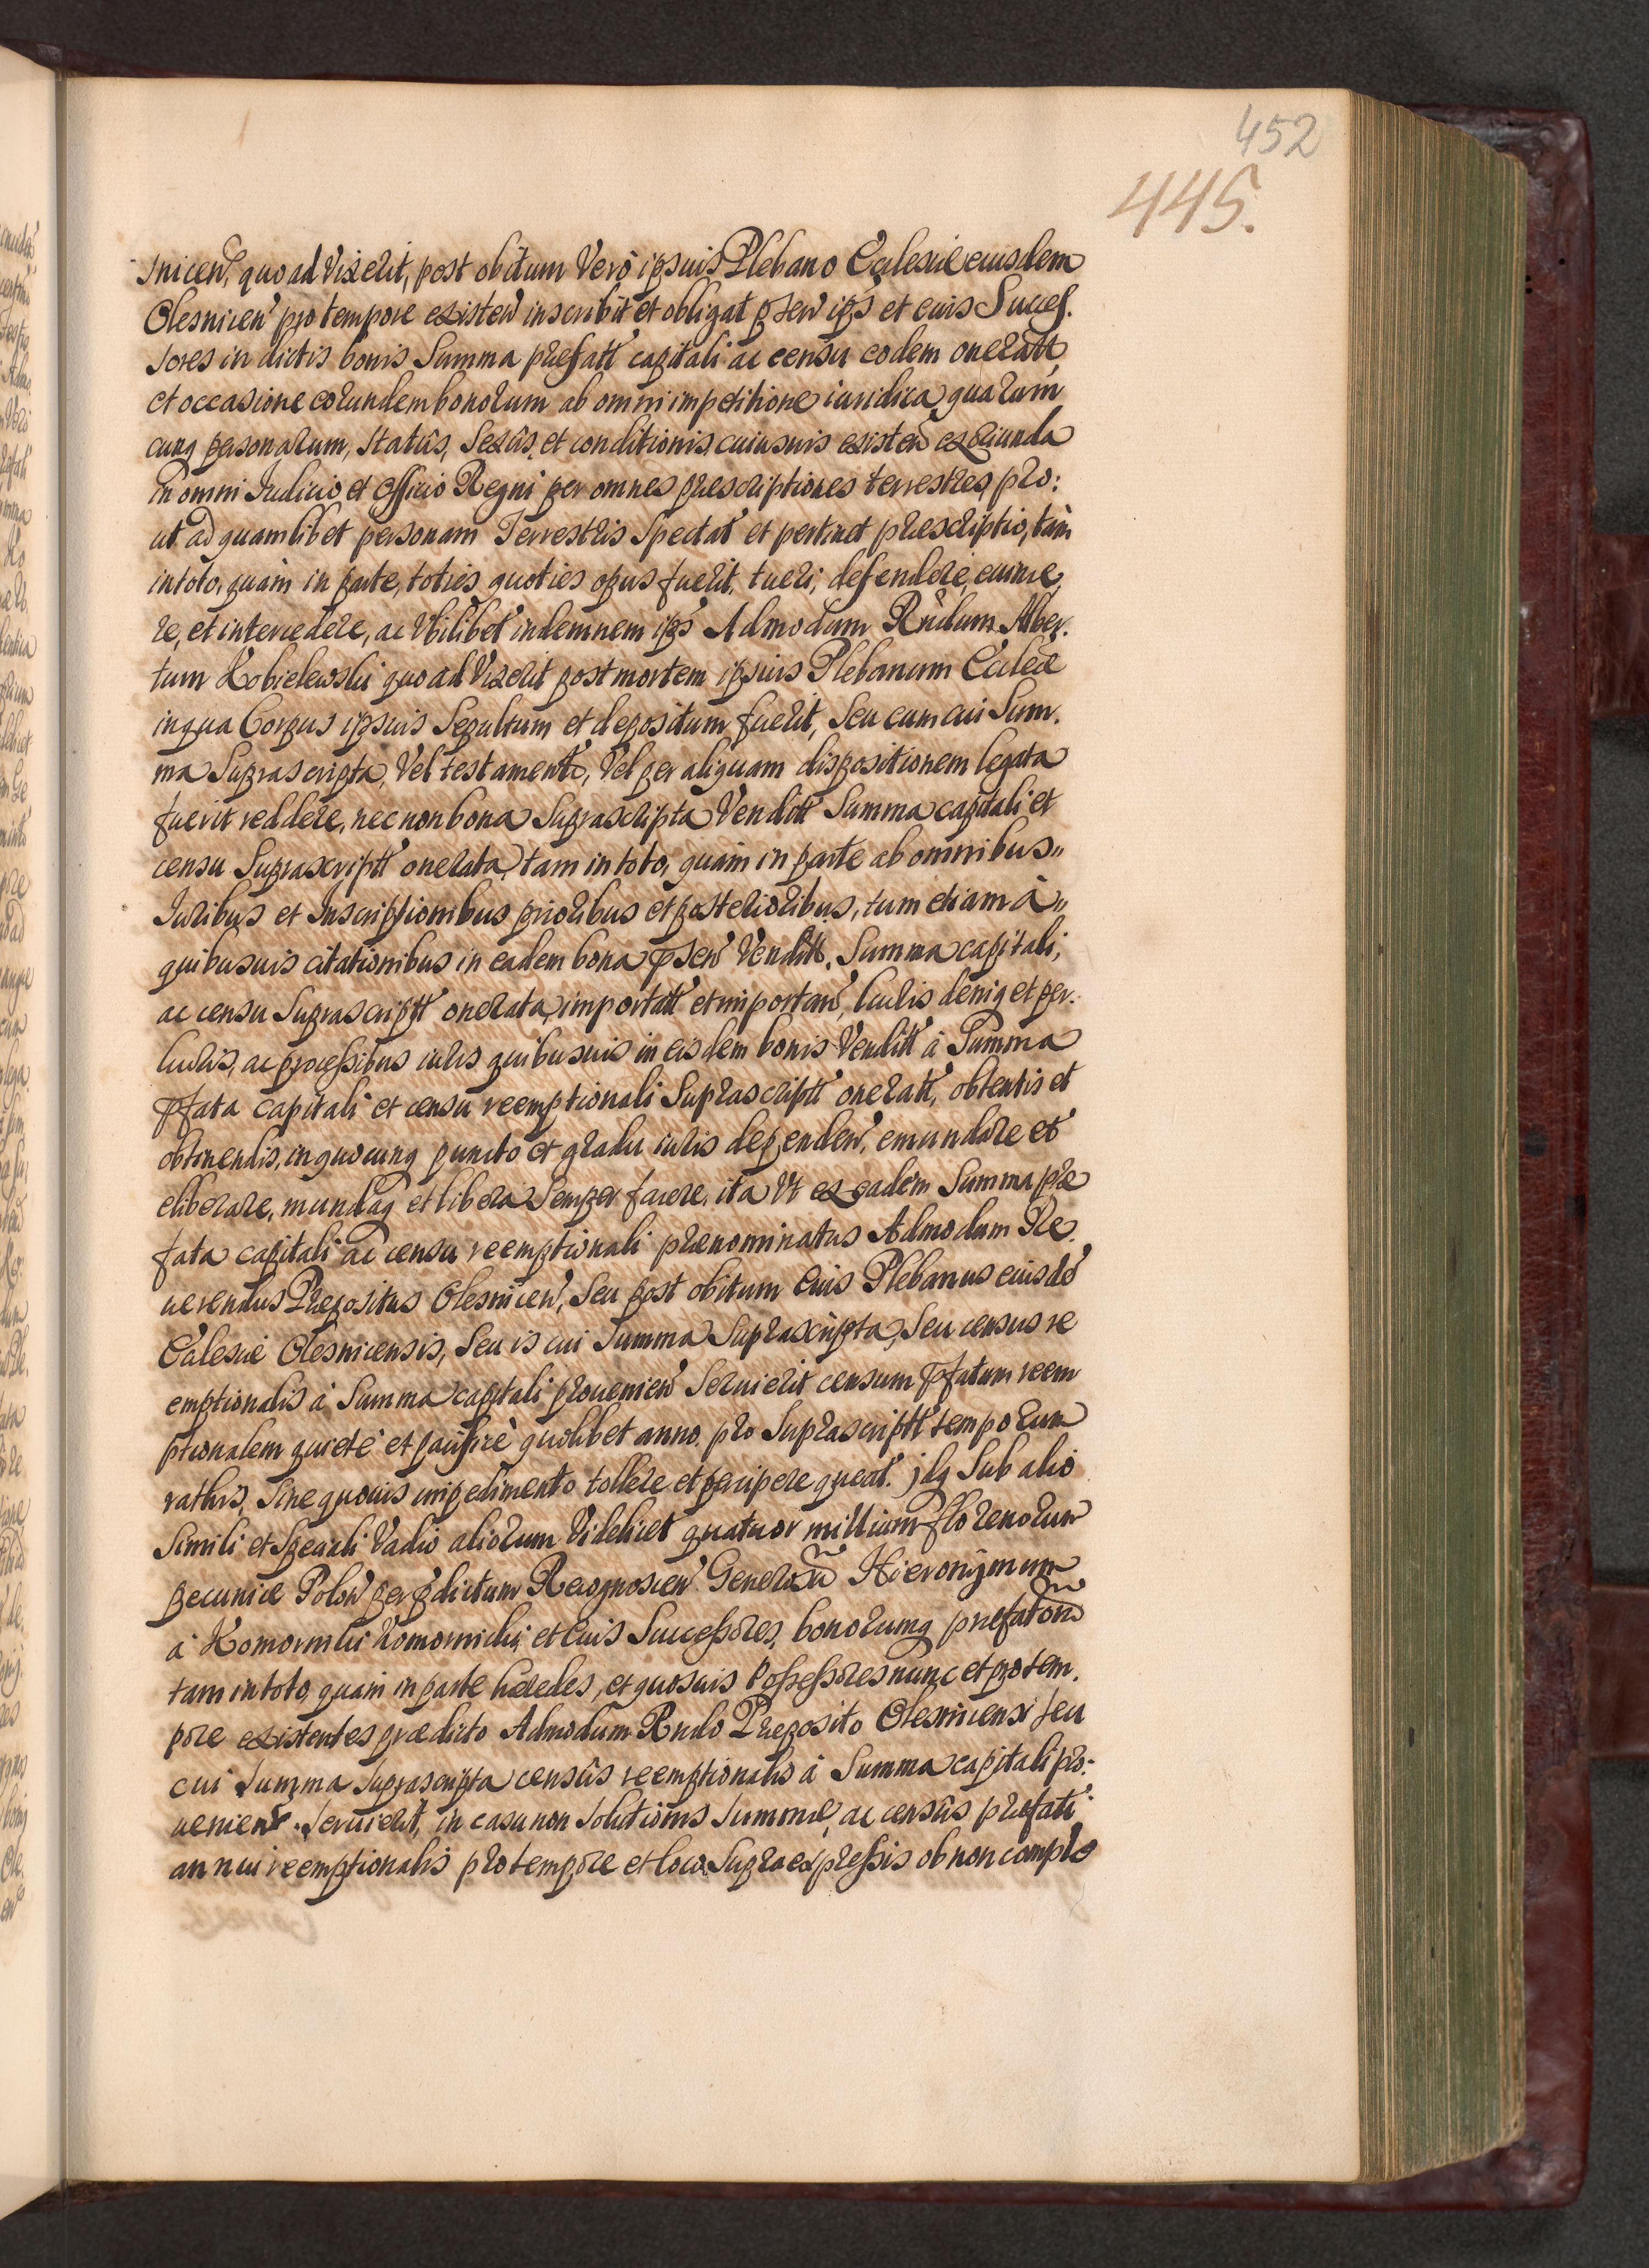 452
445.
snicen, quo ad vixerit, post obitum Verò ipsuis Plebano Ecclesiæ eiusdem
Olesnicen pro tempore existen inscribit et obligat psen ips et euis Succes.
sores in dictis bonis Summa præfatt capitali ac censu eodem oneratt,
et occasione eorundem bonorum ab omni impetitione iuridica, quarum
cunq personarum, Statûs, Sexûs, et conditionis cuiusuis existen exoriunda
in omni Judicio et Officio Regni per omnes præscriptiones terrestres, pro:
ut ad quamlibet personam Terrestris Spectat et pertinet præscriptio, tàm
in toto, quàm in parte, toties quoties opus fuerit, tueri, defendere, euince
re, et intercedere, ac Vbilibet indemnem ips Admodum Rndum Alber.
tum Kobielewski quo ad Vixerit post mortem ipsuis Plebanum Eccleæ
in qua Corpus ipsuis Sepultum et depositum fuerit, Seu eum cui Sum.
ma Suprascripta, Vel testamento, Vel per aliquam dispositionem legata
fuerit reddere, nec non bona Suprascripta Venditt Summa capitali et
censu Suprascriptt onerata, tam in toto, quàm in parte ab omnibus„
Juribus et Inscriptionibus prioribus et posterioribus, tum etiam à„
quibusuis citationibus in eadem bona psen Venditt, Summa capitali,
ac censu Suprascriptt onerata, importatt et importan, lucris deniq et per.
lucris, ac processibus iuris quibusuis in eisdem bonis Venditt à Summa
pfata capitali et censu reemptionali Suprascriptt oneratt, obtentis et
obtinendis, in quocunq puncto et gradu iuris dependen, emundare et
eliberare, mundaq et libera Semper facere, ita Vt ex eadem Summa præ
fata capitali ac censu reemptionali prænominatus Admodum Re
uerendus Præpositus Olesnicen, Seu post obitum Euis Plebanus euisdē
Ecclesiæ Olesnicensis, Seu is cui Summa Suprascripta, Seu census re
emptionalis à Summa capitali prouenien Seruierit censum pfatum reem
ptionalem quietè et pacificè quolibet anno pro Suprascriptt temporum
rathis, Sine quouis impedimento tollere et percipere queat. jdq Sub alio
Simili et Speciali Vadio aliorum Videlicet quatuor millium florenorum
pecuniæ Polon per pdictum Recognoscen Generosū Hieronÿmum
à Komorniki Komornicki et Euis Successores, bonorumq præfatorū
tam in toto, quàm in parte hæredes, et quosuis Possessores nunc et pro tem.
pore existentes prædicto Admodum Rndo Præposito Olesnicensi seu
cui Summa suprascripta censûs reemptionalis à Summa capitali pro:
uenient Seruierit, in casu non Solutionis Summæ, ac censûs præfati
annui reemptionalis pro tempore et loco Supra expressis ob non comple